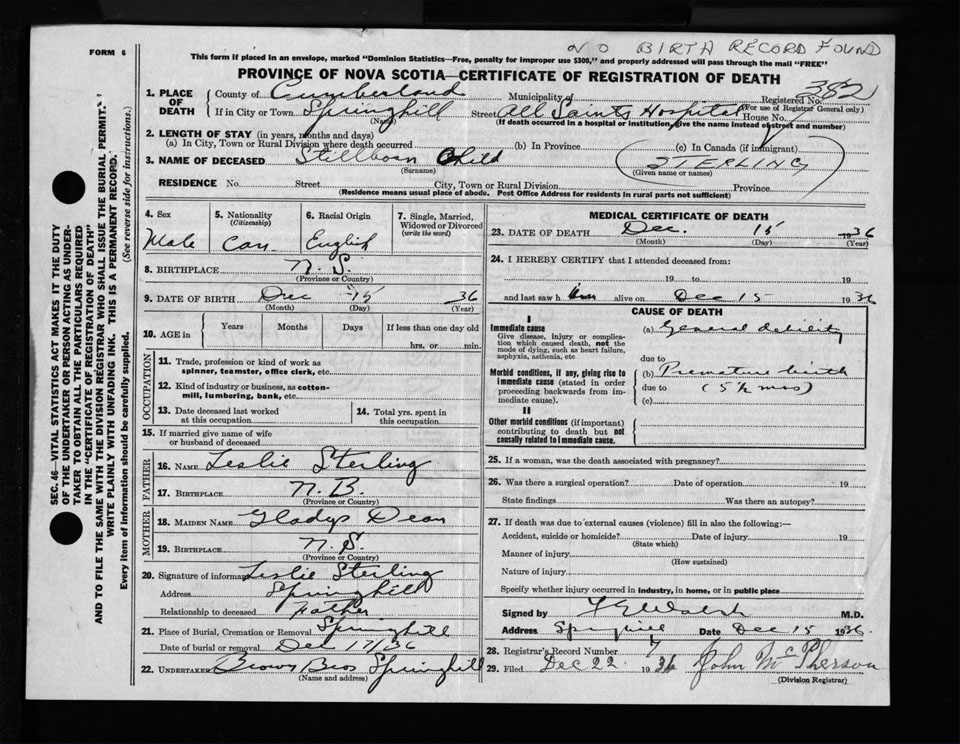 NO BIRTH RECORD FOUND
FORM 6
This form if placed in an envelope, marked "Dominion Statistics—Free, penalty for improper use $300," and properly addressed will pass through the mail "FREE"
PROVINCE OF NOVA SCOTIA—CERTIFICATE OF REGISTRATION OF DEATH
1. PLACE OF DEATH
County of Cumberland Municipality of Registered No. 382
(For use of Registrar General only)
If in City or Town Springhill Street All Saints Hospital House No.
(Name) (If death occurred in a hospital or institution, give the name instead of street and number)
2. LENGTH OF STAY (in years, months and days)
(a) In City, Town or Rural Division where death occurred (b) In Province (c) In Canada (if immigrant)
3. NAME OF DECEASED Stillborn Child STERLING
(Surname) (Given name or names)
RESIDENCE No. Street City, Town or Rural Division Province
(Residence means usual place of abode. Post Office Address for residents in rural parts not sufficient)
4. Sex Male
5. Nationality (Citizenship) Can
6. Racial Origin English
7. Single, Married, Widowed or Divorced (write the word)
8. BIRTHPLACE N. S.
(Province or Country)
9. DATE OF BIRTH Dec 15 36
(Month) (Day) (Year)
10. AGE in Years Months Days If less than one day old
hrs. or min.
OCCUPATION
11. Trade, profession or kind of work as spinner, teamster, office clerk, etc.
12. Kind of industry or business, as cotton-mill, lumbering, bank, etc.
13. Date deceased last worked at this occupation
14. Total yrs. spent in this occupation.
15. If married give name of wife or husband of deceased
FATHER
16. NAME Leslie Sterling
17. BIRTHPLACE N. B.
(Province or Country)
MOTHER
18. MAIDEN NAME Gladys Dean
19. BIRTHPLACE N. S.
(Province or Country)
20. Signature of informant Leslie Sterling
Address Springhill
Relationship to deceased Father
21. Place of Burial, Cremation or Removal Springhill
Date of burial or removal Dec 17/36
22. UNDERTAKER Brown Bros Springhill
(Name and address)
MEDICAL CERTIFICATE OF DEATH
23. DATE OF DEATH Dec. 15 1936
(Month) (Day) (Year)
24. I HEREBY CERTIFY that I attended deceased from:
19 to 19
and last saw h alive on Dec 15 1936
CAUSE OF DEATH
I
Immediate cause
Give disease, injury or complication which caused death, not the mode of dying, such as heart failure, asphyxia, asthenia, etc
(a) General debility
due to
Morbid conditions, if any, giving rise to immediate cause (stated in order proceeding backwards from immediate cause).
(b) Premature birth
due to (5½ mos)
(c)
II
Other morbid conditions (if important) contributing to death but not causally related to immediate cause.
25. If a woman, was the death associated with pregnancy?
26. Was there a surgical operation? Date of operation 19
State findings Was there an autopsy?
27. If death was due to external causes (violence) fill in also the following:—
Accident, suicide or homicide? Date of injury 19
(State which)
Manner of injury
(How sustained)
Nature of injury
Specify whether injury occurred in industry, in home, or in public place
Signed by Walsh M.D.
Address Springhill Date Dec 15 1936.
28. Registrar's Record Number
29. Filed Dec 22 1936 John McPherson
(Division Registrar)
SEC. 46—VITAL STATISTICS ACT MAKES IT THE DUTY
OF THE UNDERTAKER OR PERSON ACTING AS UNDER-
TAKER TO OBTAIN ALL THE PARTICULARS REQUIRED
IN THE "CERTIFICATE OF REGISTRATION OF DEATH"
AND TO FILE THE SAME WITH THE DIVISION REGISTRAR WHO SHALL ISSUE THE BURIAL PERMIT.
WRITE PLAINLY WITH UNFADING INK. THIS IS A PERMANENT RECORD.
Every item of information should be carefully supplied. (See reverse side for instructions.)